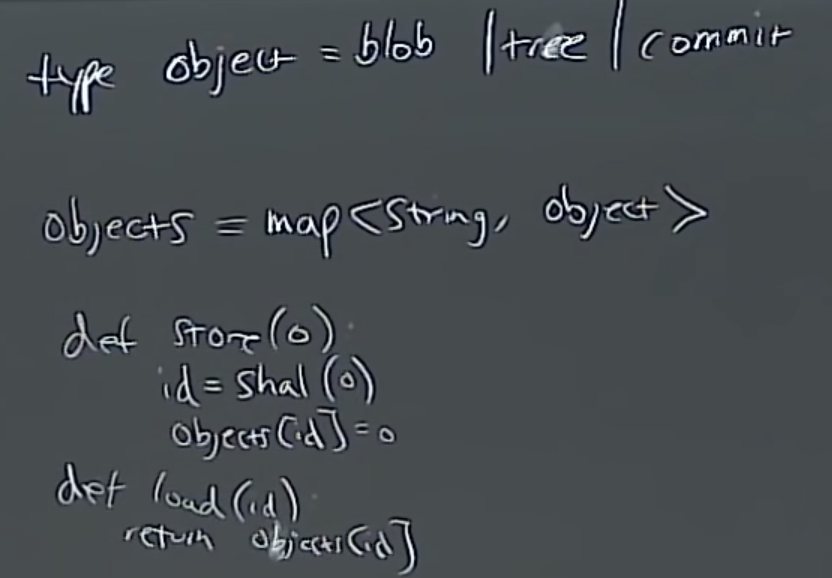 type object = blob | tree | commit
objects = map<string, object>
def store(o)
id = sha1(o)
objects[id] = o
def load(id)
return objects[id]